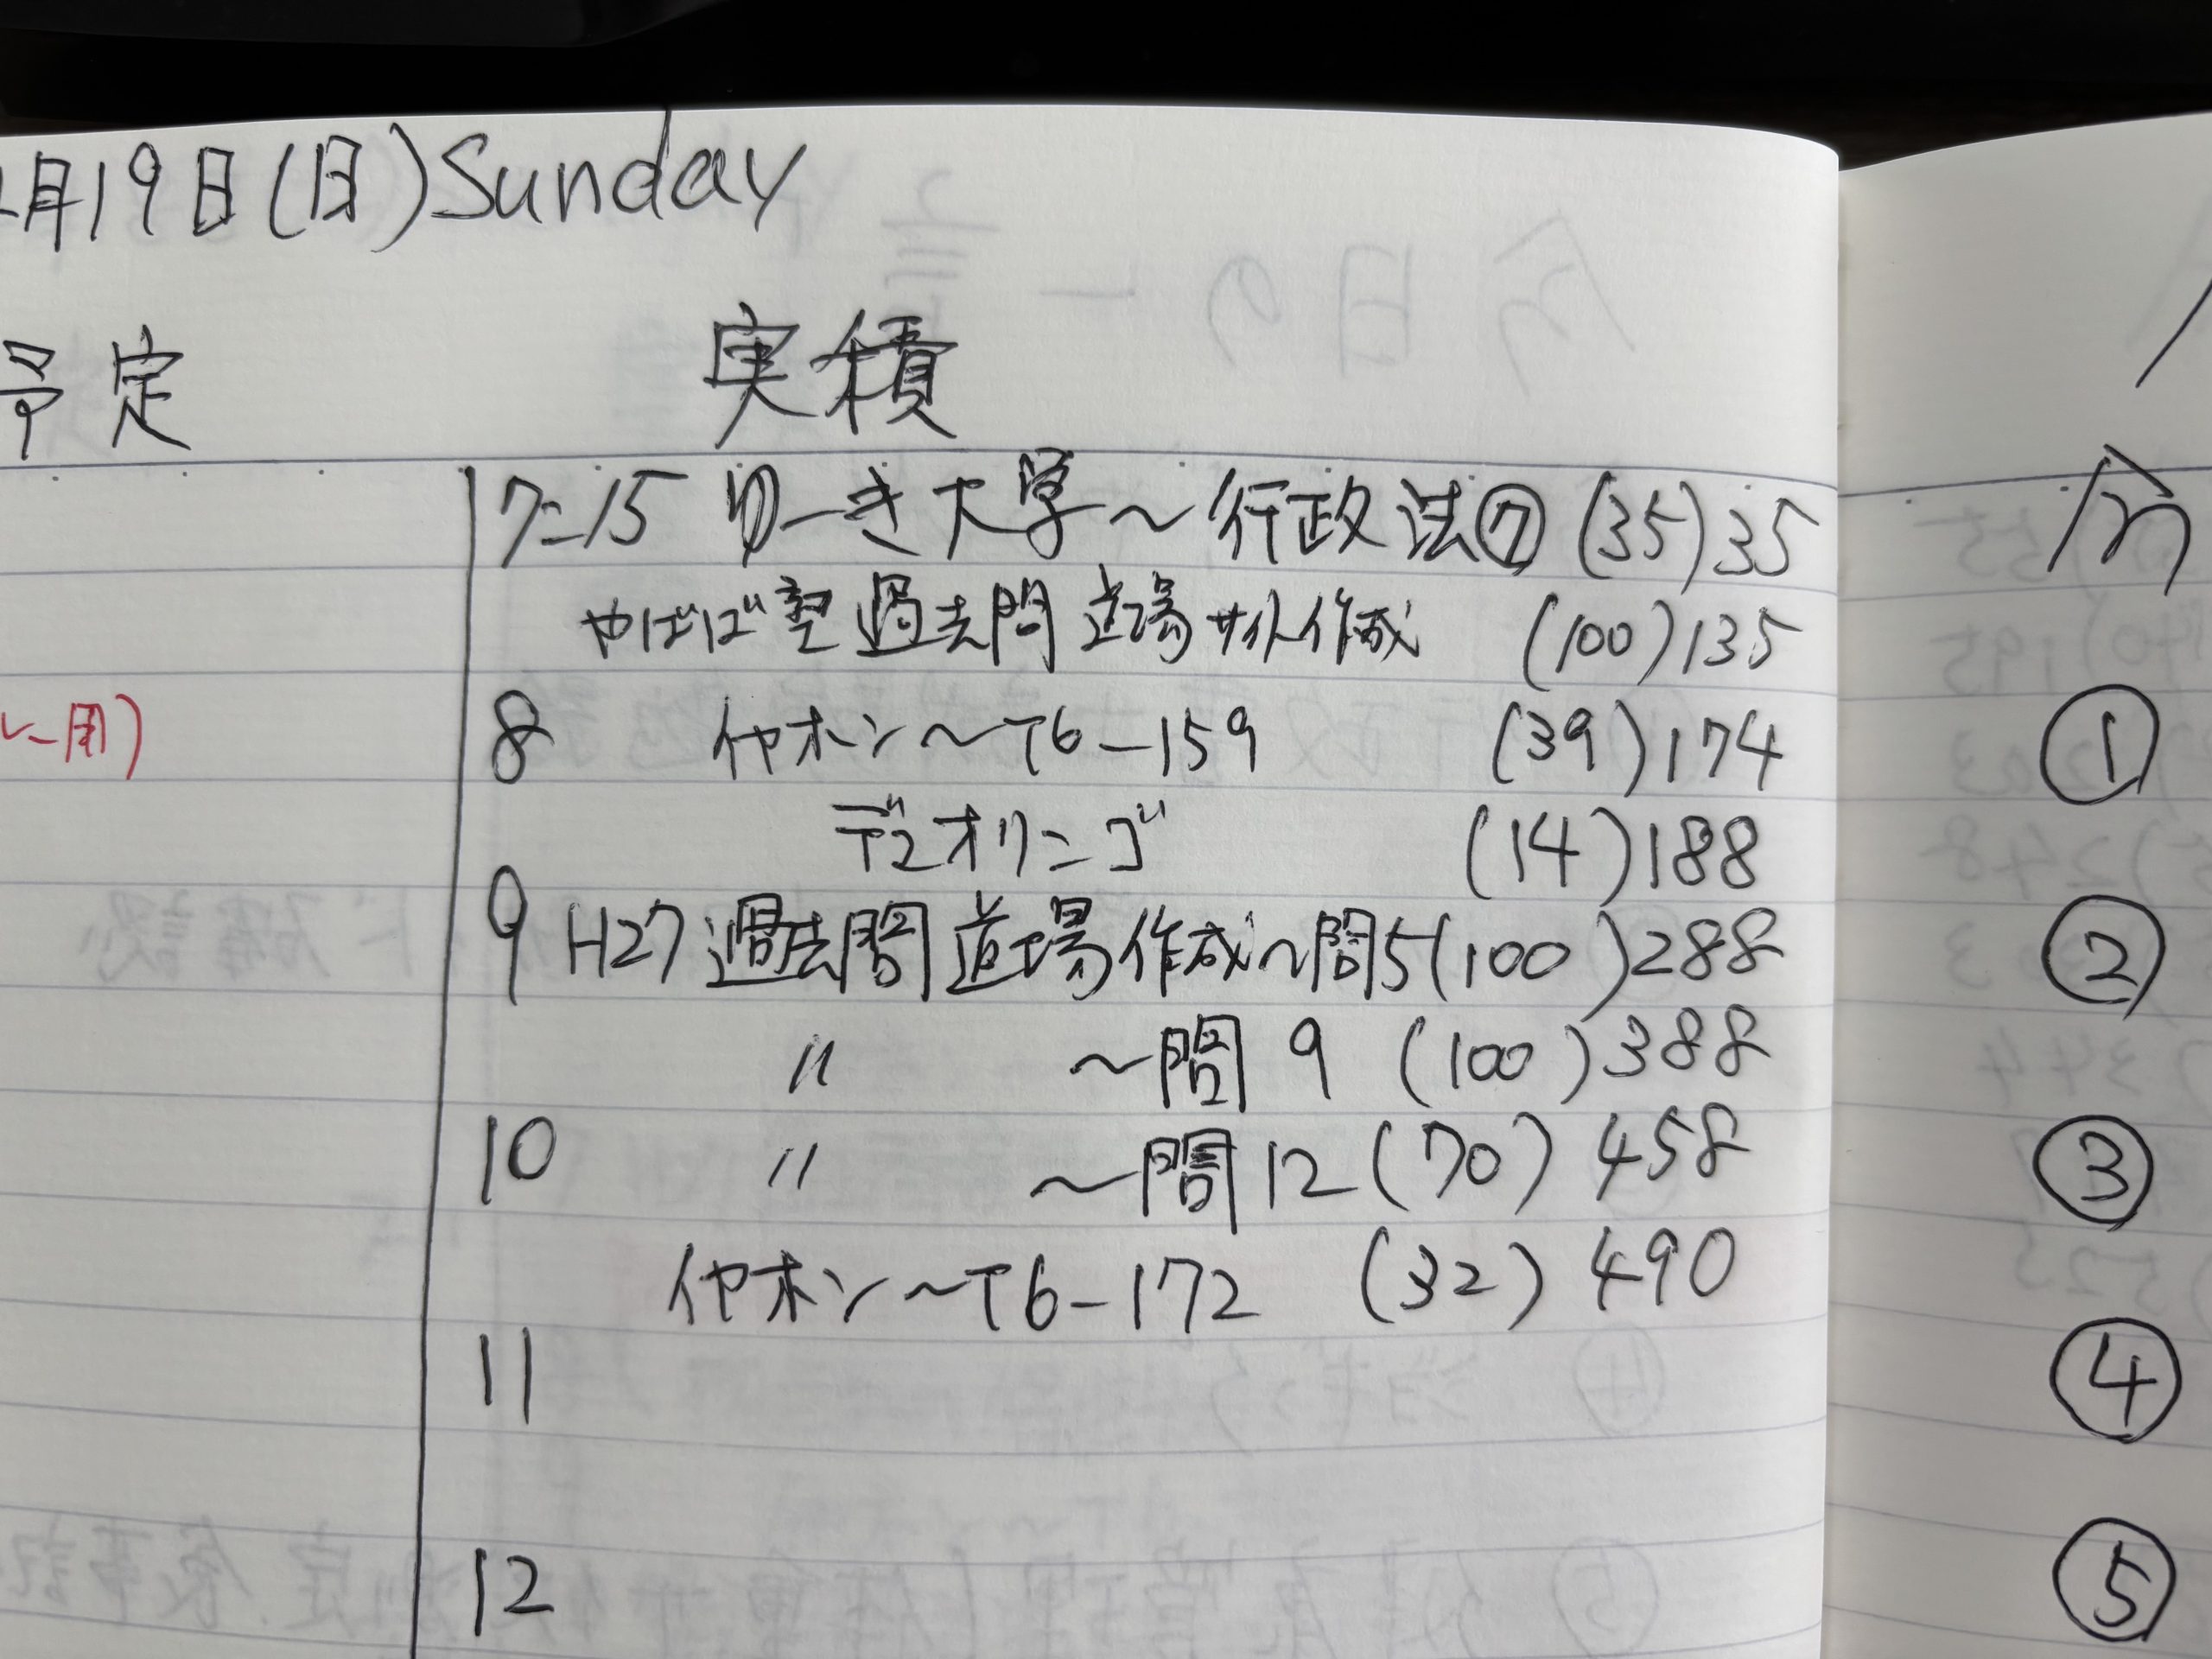 月19日(日)Sunday
予定 実積
7:15 ゆーき大学～行政法⑦ (35)35
やばば塾過去問道場サイト作成 (100)135
8 イヤホン～T6-159 (39)174
デュオリンゴ (14)188
9 H27過去問道場作成～問5(100)288
〃 ～問9 (100)388
10 〃 ～問12(70)458
イヤホン～T6-172 (32)490
11
12
①
②
③
④
⑤